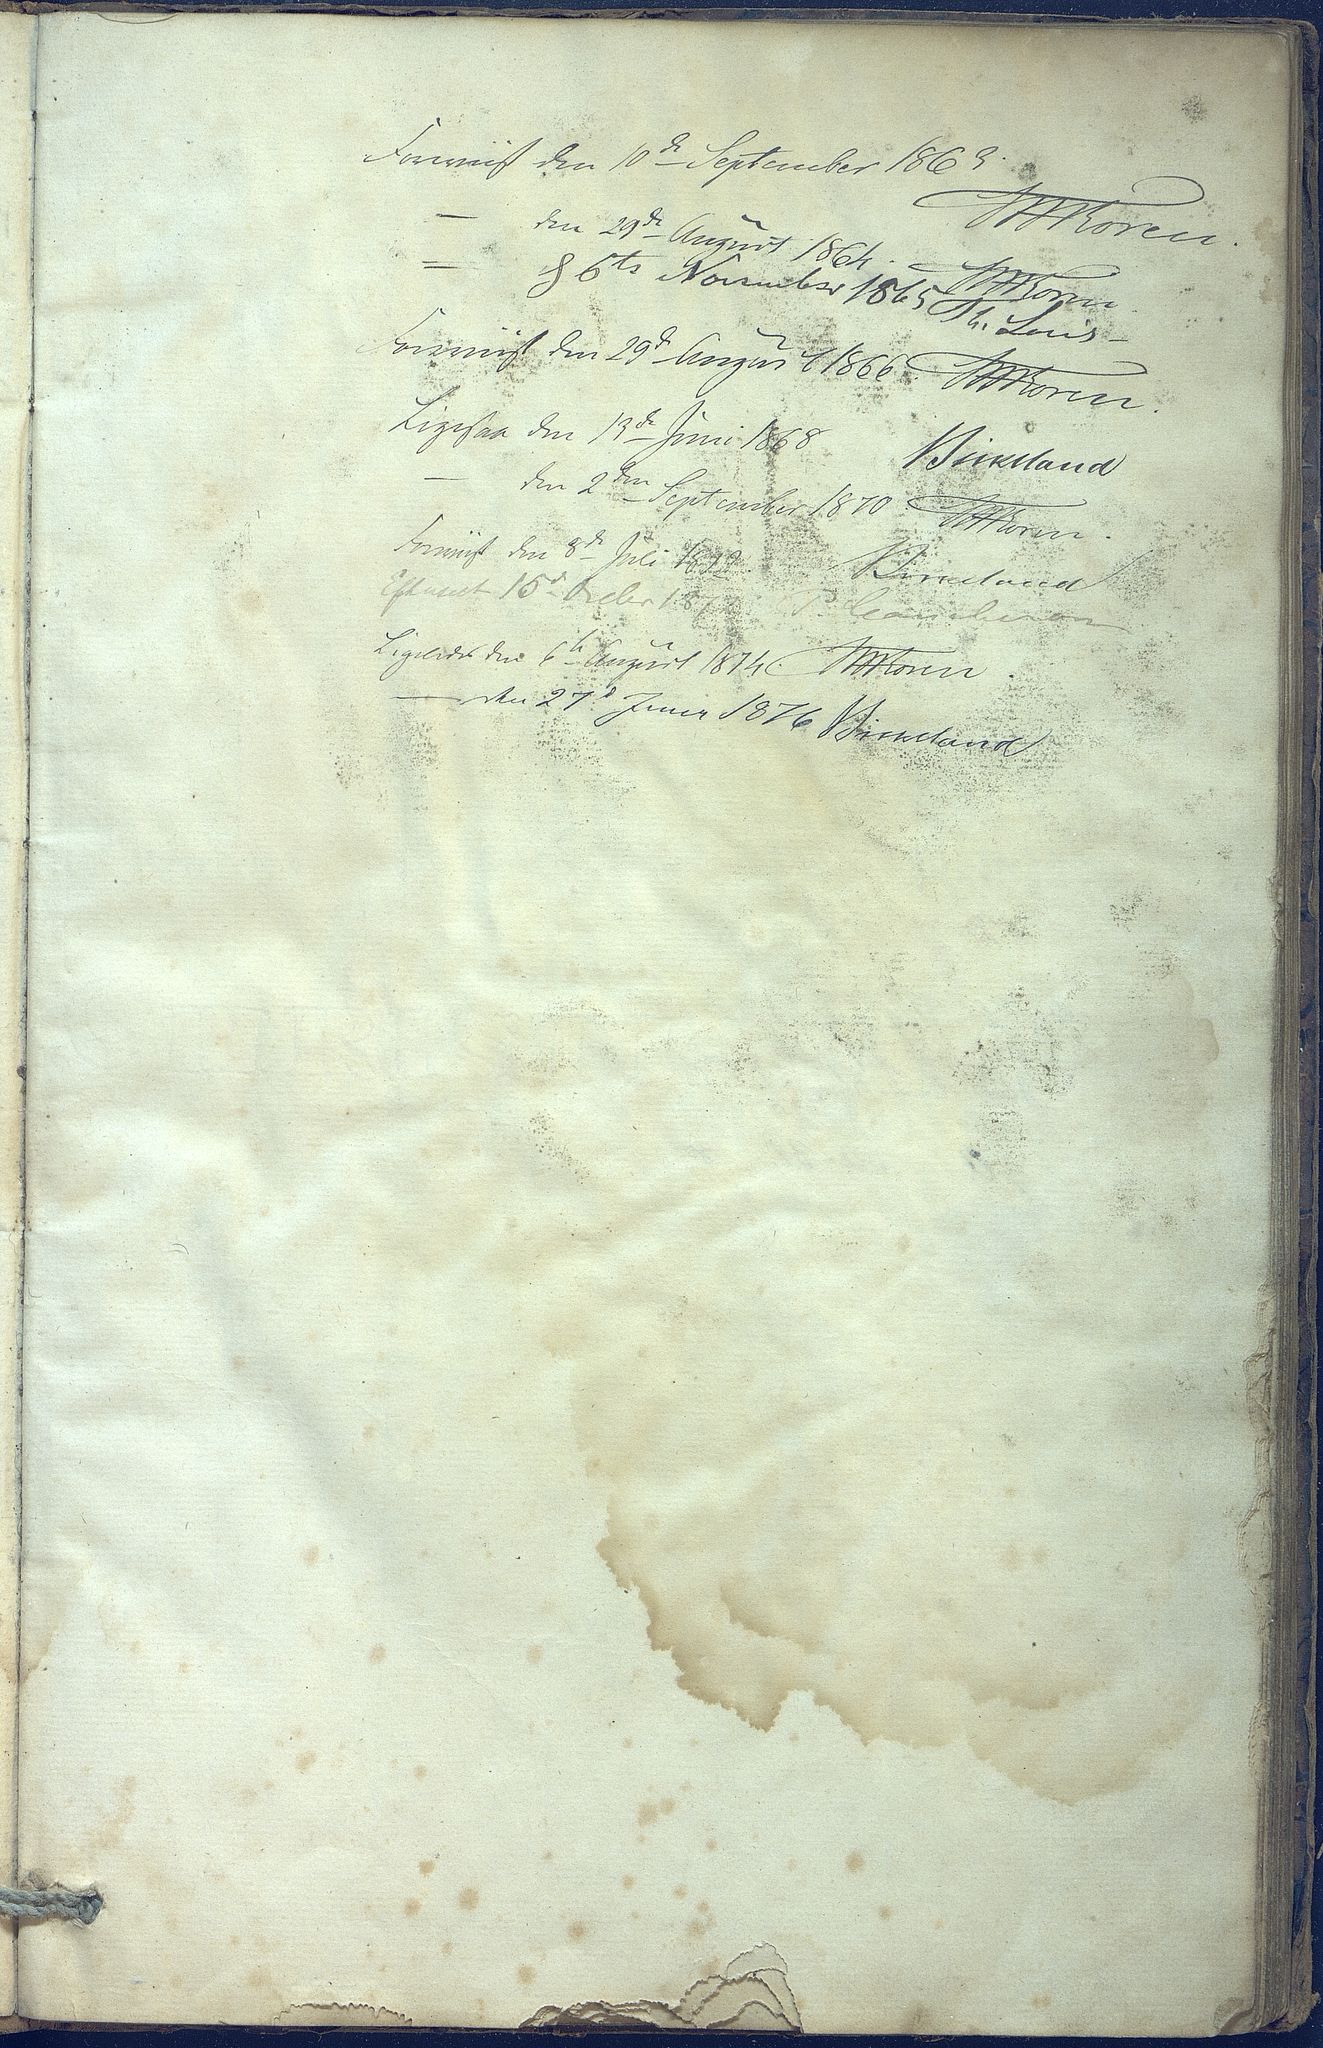 Foreviist den 10de September 1863.
WMKoren.
— den 29de August 1864. WMKoren
— d 6te November 1865 Th. Louis
Foreviist den 29de August 1866. WMKoren.
Ligesaa den 13de Juni 1868 Birkeland
— den 2den September 1870 WMKoren.
Foreviist den 8de Juli 1872. Birkeland
Efterseet 15de Octbr 187
Ligeledes den 6te August 1874. WMKoren.
— den 27de Juni 1876 Birkeland